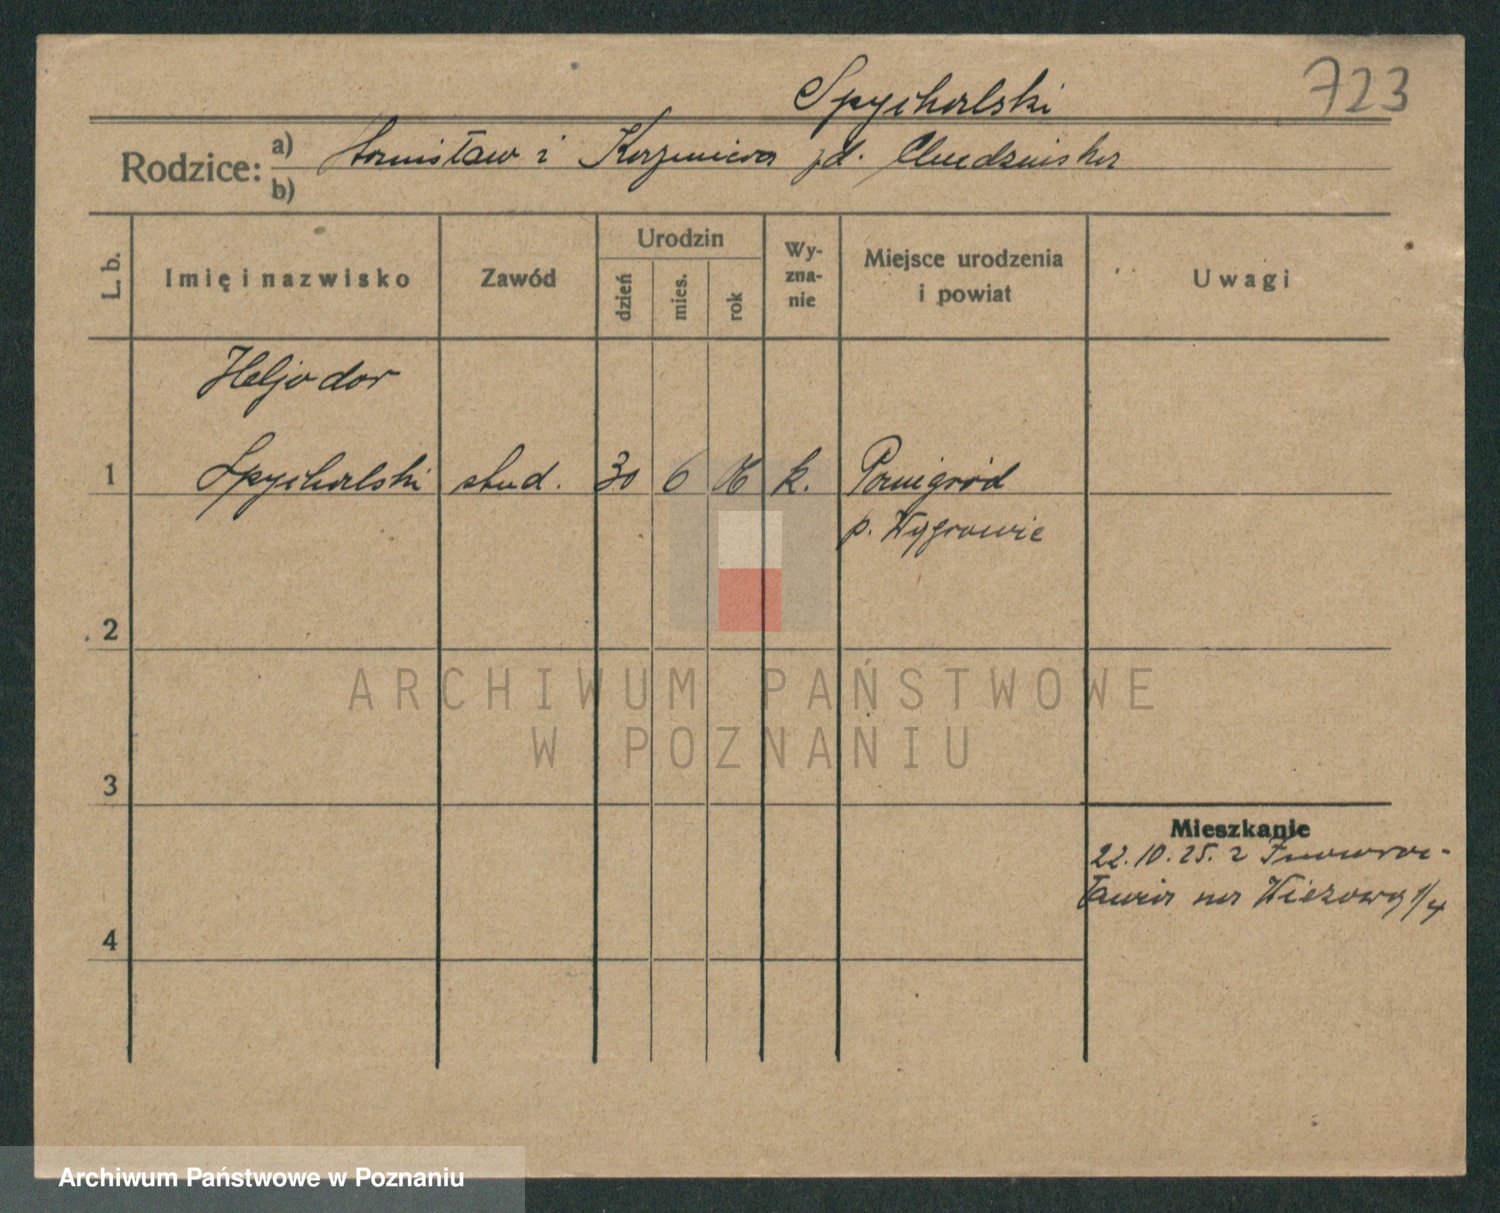 723
Spychalski
Rodzice: a) Stanisław i Kazimiera zd. Chudzińska
b)
L. b.
Imię i nazwisko
Zawód
Urodzin
dzień
mies.
rok
Wy-
zna-
nie
Miejsce urodzenia
i powiat
Uwagi
Heljodor
1 Spychalski stud. 30 6 06 k. Panigród
p. Wągrowiec
2
3
4
Mieszkanie
22.10.25. z Inowroc-
ławia na Wieżową 1/4
ARCHIWUM PAŃSTWOWE
W POZNANIU
Archiwum Państwowe w Poznaniu